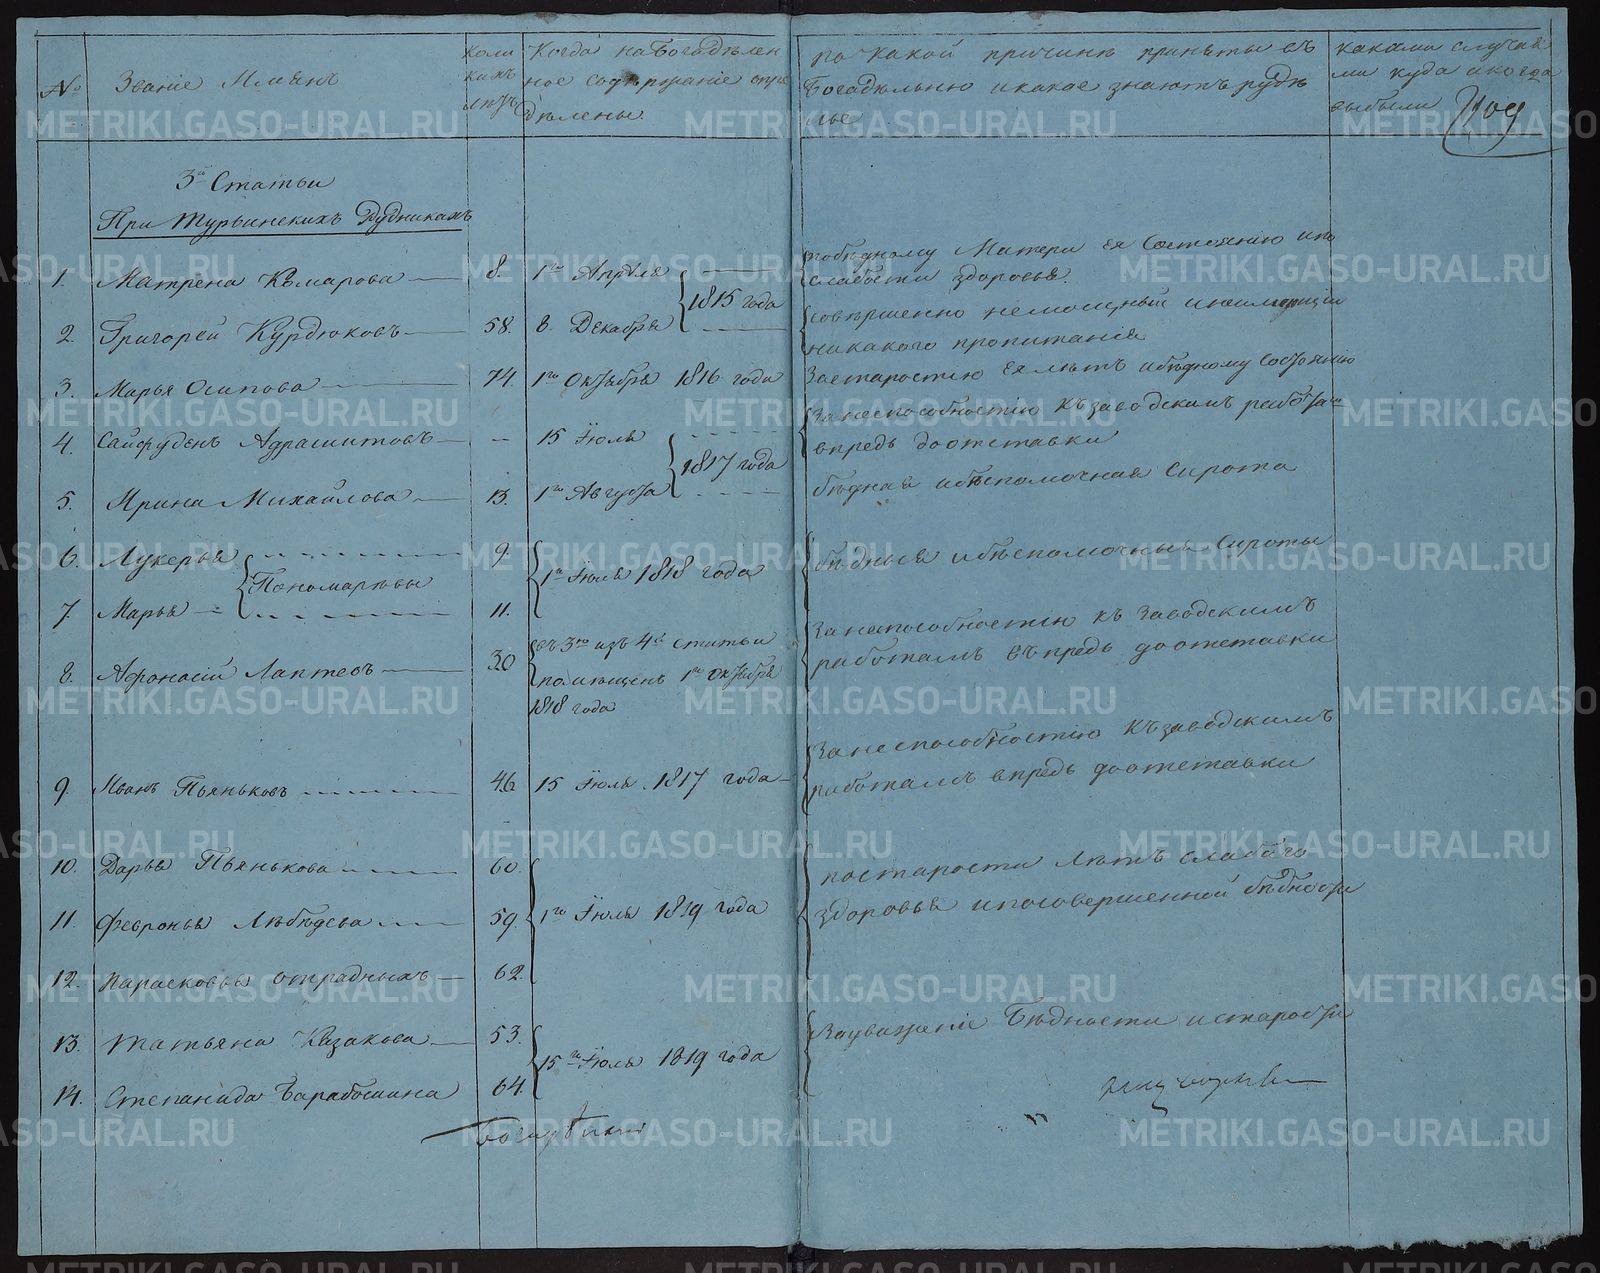 №
Званiе Имянъ
коли
кихъ
лѣтъ
Когда на Богадѣлен
ное содержанiе опре
дѣлены
по какой причинѣ приняты въ
Богадѣльню и какое знаютъ рудѣ
лье
какими случая
ми куда и когда
выбыли
3й Статьи
При Турьинскихъ Рудникахъ
1. Матрена Комарова 8. 1го Апрѣля
1815 года
побѣдному Матери ея Состоянию и по
слабости здоровья.
2. Григорей Курдюковъ 58. 8. Декабря
совершенно немощный и неимѣющiй
никакого пропитанiя
3. Марья Осипова 74. 1го Октября 1816 года
За старостiю ея лѣтъ и бѣдному состоянию
4. Сайфуденъ Адрашитовъ — 15 Iюля
1817 года
За неспособностiю къ заводскимъ работам
впредь до отставки
5. Ирина Михайлова 13. 1го Августа
бѣдная и безпомочная Сирота
6. Лукерья 9.
Пономаревы
1го Iюля 1818 года
бѣдныя и безпомочныя Сироты
7. Марья 11.
8. Афонасiй Лаптевъ 30
въ 3ю изъ 4й статьи
помѣщенъ 1го Октября
1818 года
За неспособностiю къ Заводскимъ
работамъ впредь до отставки
9. Иванъ Пьяньковъ 46. 15 Iюля 1817 года
За неспособностiю къ заводскимъ
работамъ впредь до отставки
10. Дарья Пьянькова 60.
11. Февронья Лебедева 59. 1го Iюля 1819 года
по старости лѣтъ слабаго
здоровья и по совершенной бѣдности
12. Парасковья Отрадныхъ 62.
13. Татьяна Казакова 53.
15го Iюля 1819 года
За уваженiе Бѣдности и старости
14. Степанида Барабошина 64.
METRIKI.GASO-URAL.RU